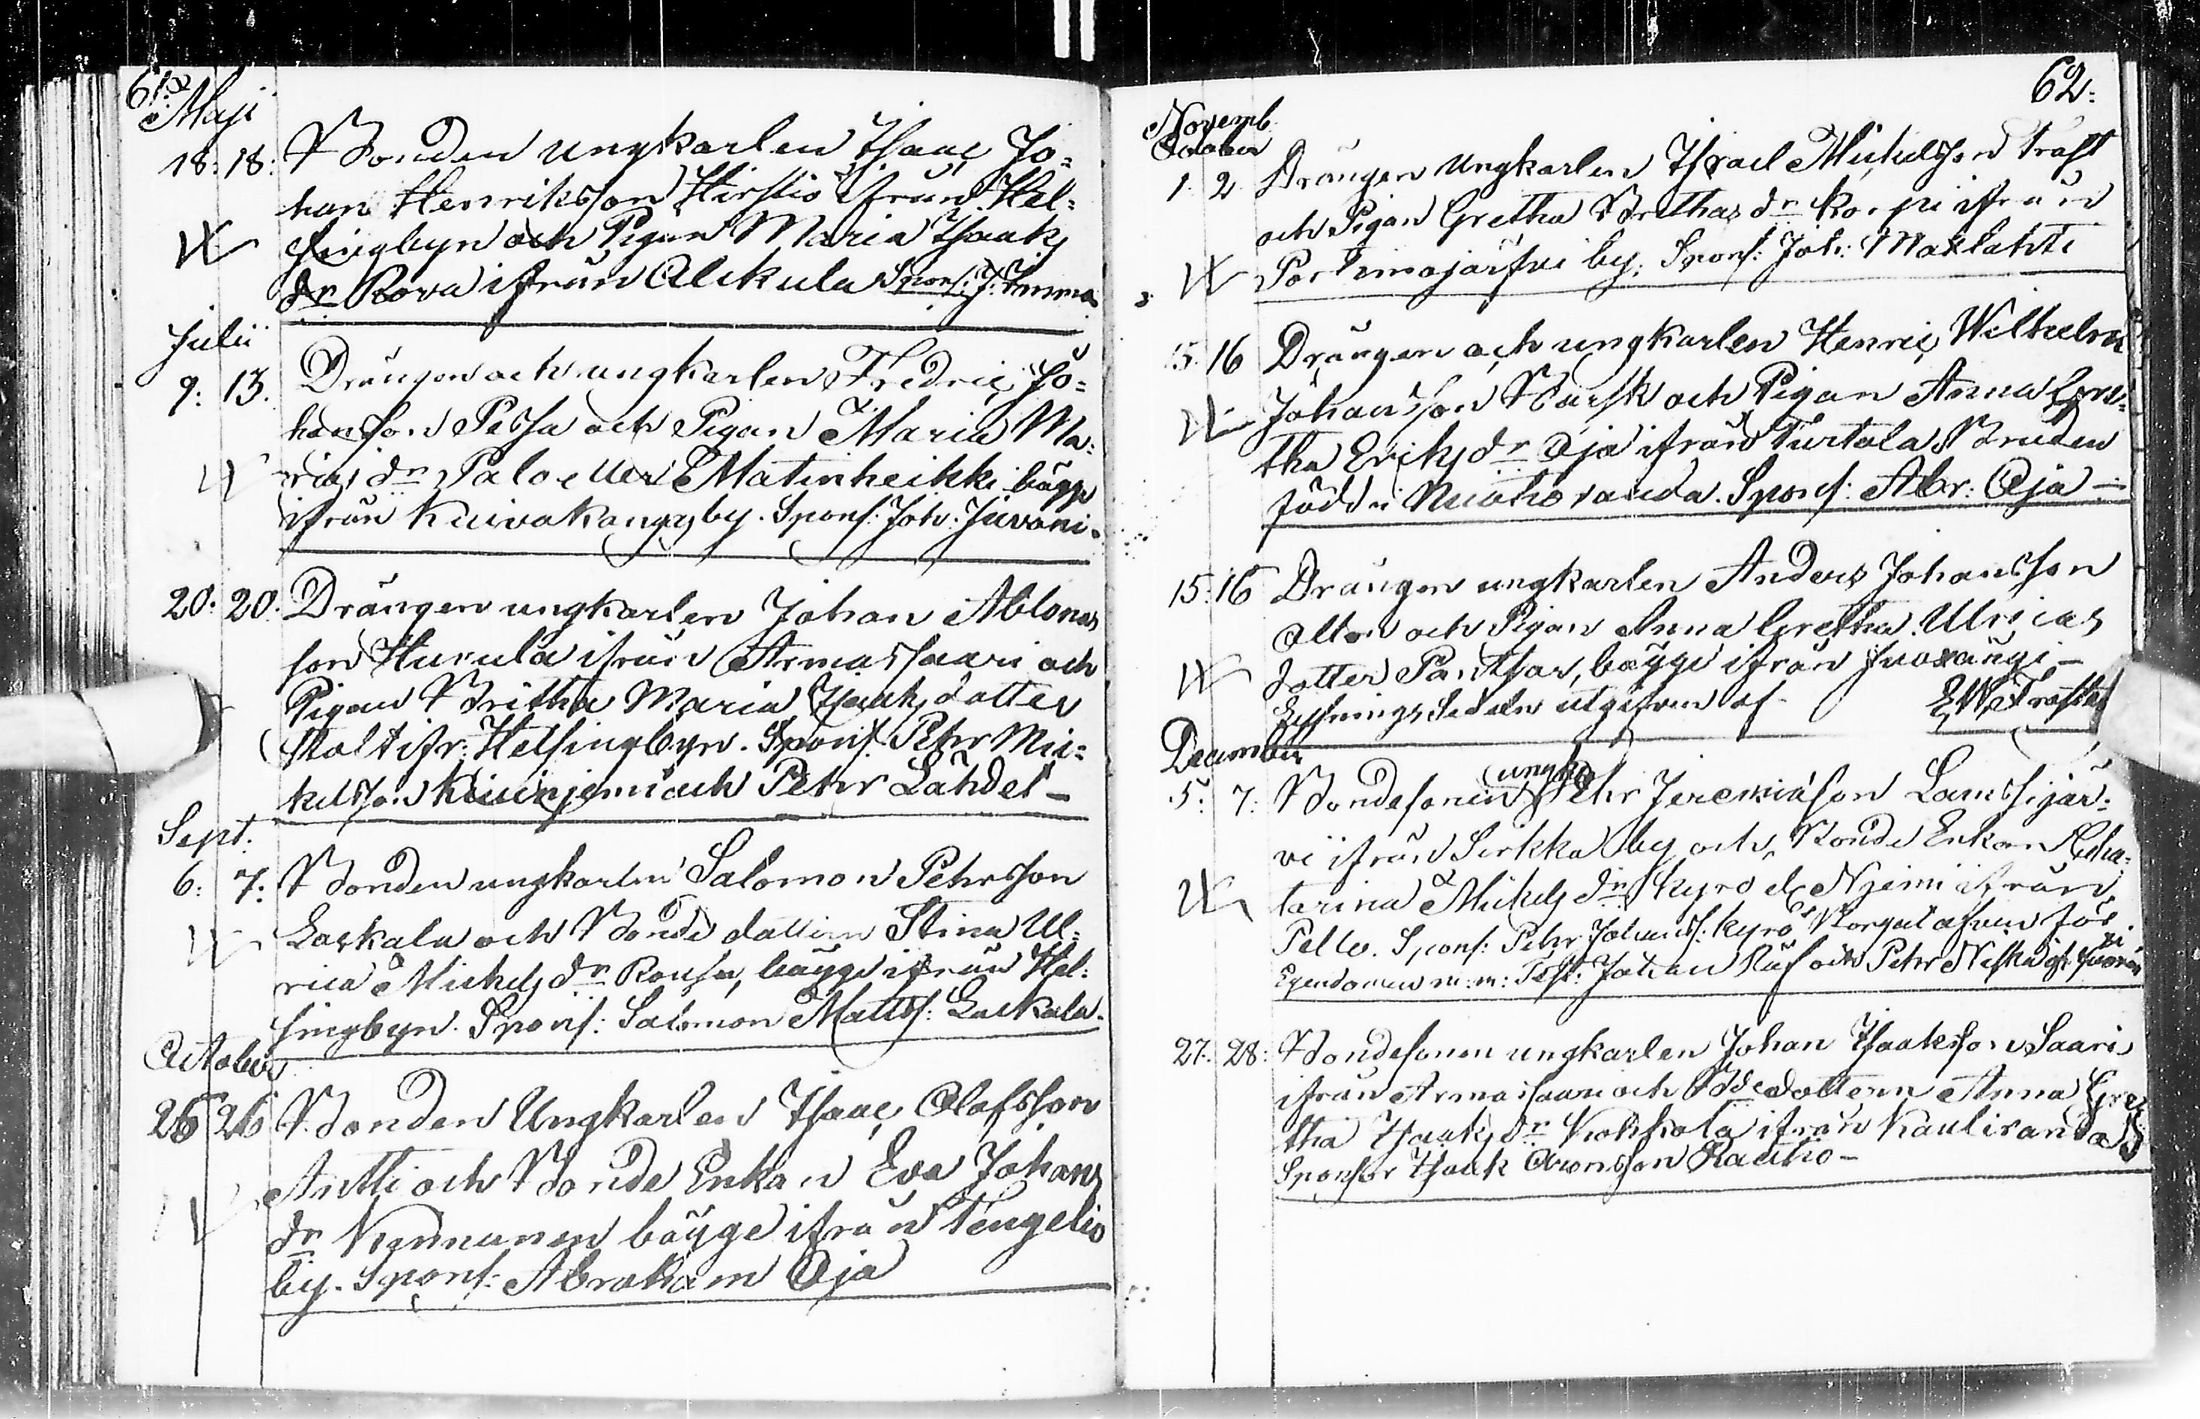 61:
Maji
18: 18: Bonden ungkarlen Isaac Jo=
han Henriksson Hirstio ifrån Hel=
singbyn och Pigan Maria Isaaks
dr Rova ifrån Alkula Spons: J:
Julii
9: 13. Drängen och ungkarlen Fredric Jo=
hansson Pessa och Pigan Maria Ma=
rias dr Palo eller Matinheikki bägge
ifrån Kuivakangas by. Spons: Joh: Juvani.
20: 20: Drängen ungkarlen Johan Ablons
son Hurula ifrån Armassaari och
Pigan Britha Maria Isaaks dotter
Stolt ifr: Helsingbyn. Spons: Pehr Mi=
kelsson och Pehr Lahdet –
Sept:
6: 7: Bonden ungkarlen Salomon Pehrsson
Laskala och Bonde dottern Stina Ul=
rica Mickels dr Rousu, bägge ifrån Hel=
singbyn. Spons: Salomon Matts: Laskala.
October
26 26 Bonden Ungkarlen Isaac Olofsson
Antti och Bonde Enkan Eva Johans
dr Kinnunen bägge ifrån Tengelio
by. Spons: Abraham Oja
62:
Novemb
October
1. 2. Drängen Ungkarlen Israel Mickelsson Kraft
och Pigan Gretha Brithas dr Korpi ifrån
Portimojärfvi by: Spons: Joh:
15. 16 Drängen och ungkarlen Henric Wilhelm
Johansson Barsk och Pigan Anna Gre=
tha Eriks dr Oja ifrån Turtola Bruden
född i Ruokoranda. Spons: Abr: Oja –
15: 16 Drängen ungkarlen Anders Johansson
Alton och Pigan Anna Gretha Ulricas
dotter Panthsar, bägge ifrån Juoxängi –
Lysningssedeln utgifven af
December
5: 7: Bondesonen ungk: Pehr Jeremiasson Lamssijär=
vi ifrån Sirkka by och Bonde Enkan Catha=
rina Mickels dr Kyrö el. Niemi ifrån
Pello. Spons: Pehr Johanss: Kyrö Morgongåfvan för
Egendomen m: m: Test: Johan Rüf och Pehr
27. 28: Bondesonen ungkarlen Johan Isaaksson Saari
ifrån Armassaari och Bdedottern Anna Gre
tha Isaaks dr Kokkola ifrån Kauliranda
Sponsor Isaak Aronsson Rautio –